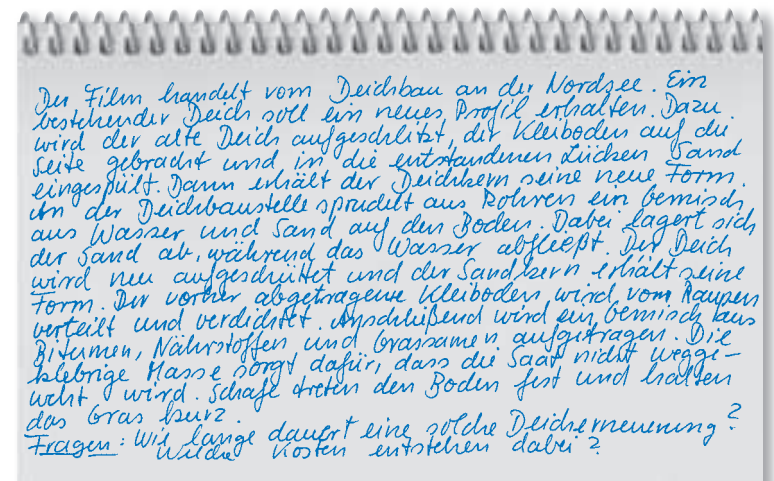 Der Film handelt vom Deichbau an der Nordsee. Ein
bestehender Deich soll ein neues Profil erhalten. Dazu
wird der alte Deich aufgeschlitzt, der Kleiboden auf die
Seite gebracht und in die entstandenen Lücken Sand
eingespült. Dann erhält der Deichkern seine neue Form.
An der Deichbaustelle sprudelt aus Rohren ein Gemisch
aus Wasser und Sand auf den Boden. Dabei lagert sich
der Sand ab, während das Wasser abfließt. Der Deich
wird neu aufgeschüttet und der Sandkern erhält seine
Form. Der vorher abgetragene Kleiboden wird vom Raupen
verteilt und verdichtet. Anschließend wird ein Gemisch aus
Bitumen, Nährstoffen und Grassamen aufgetragen. Die
klebrige Masse sorgt dafür, dass die Saat nicht wegge-
weht wird. Schafe treten den Boden fest und halten
das Gras kurz.
Fragen: Wie lange dauert eine solche Deicherneuerung?
Welche Kosten entstehen dabei?